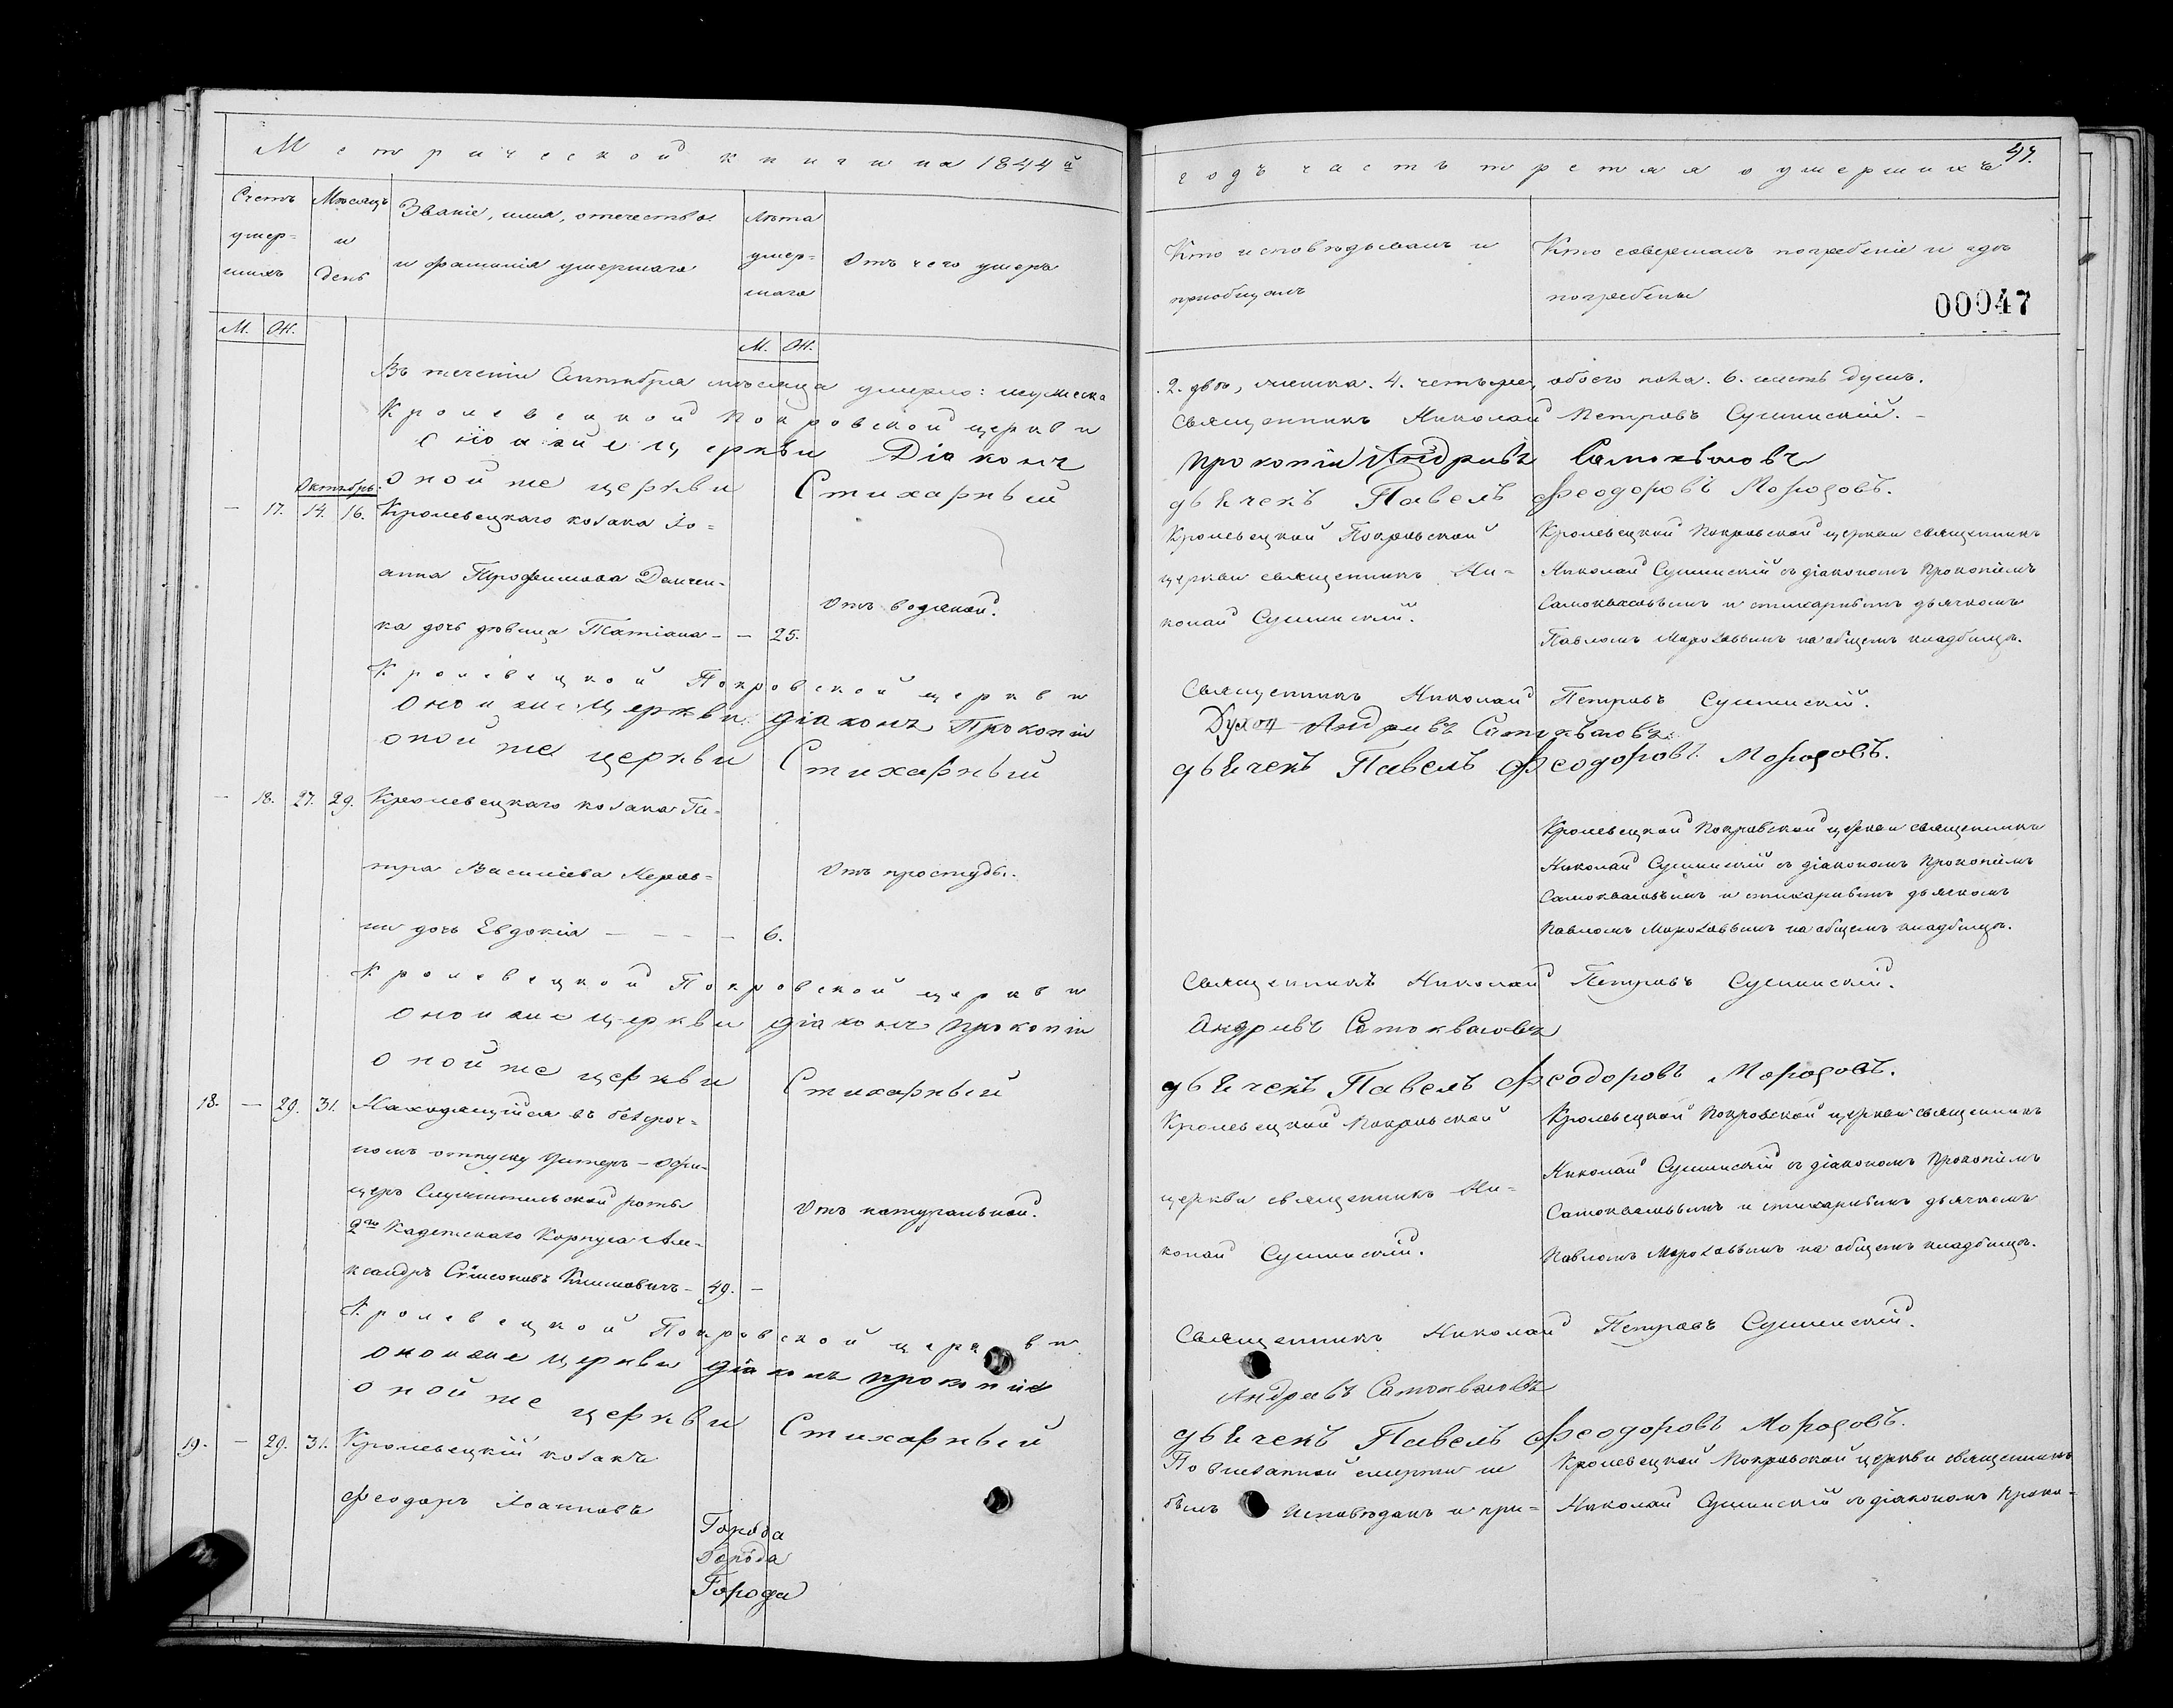 Метрической книги на 1844й
Счетъ умер=шихъ
Мѣсяцъ и день
Званіе, имя, отечество и фамилія умершаго
Лѣта умер=шаго
Отъ чего умеръ
М. Ж.
М. Ж.
Въ теченіи Сентября мѣсяца умерло: мужеска
Кролевецкой Покровской церкви
оной же церкви Діаконъ
оной же церкви Стихарный
Октябрь.
— 17. 14. 16. Кролевецкаго козака Іо=
анна Трофимова Данчен-
ка дочь дѣвица Татіана - — 25. Отъ водяной.
Кролевецкой Покровской церкви
оной же церкви діаконъ Прокопій
оной же церкви Стихарный
— 18. 27. 29. Кролевецкаго козака Пе=
тра Василіева
дочь Евдокія — — — — 6. Отъ простуды.
Кролевецкой Покровской церкви
оной же церкви діаконъ Прокопій
оной же церкви Стихарный
18. — 29. 31. Находящійся въ безсроч=
номъ отпуску Унтеръ-Офи-
церъ Служительской роты
2го Кадетскаго Корпуса Але-
ксандръ Сѵмеоновъ Климовичъ - 49. — Отъ натуральной.
Кролевецкой Покровской церкви
оной же церкви діаконъ Прокопій
оной же церкви Стихарный
19. — 29. 31. Кролевецкій козакъ
Феодоръ Іоанновъ
Города
Города
Города
годъ часть третяя о умершихъ
47.
Кто исповѣдывалъ и пріобщалъ
Кто совершалъ погребеніе и гдѣ погребены
00047
2. два, женска. 4. четыре, обоего пола. 6. шесть душъ.
Священникъ Николай Петровъ Сушинскій.
Прокопій Андріевъ Самоквасовъ
дьячекъ Павелъ Феодоровъ Морозовъ.
Кролевецкой Покровской
церкви священникъ Ни=
колай Сушинскій.
Кролевецкой Покровской церкви священникъ
Николай Сушинскій съ діакономъ Прокопіемъ
Самоквасовымъ и стихарнымъ дьячкомъ
Павломъ Морозовымъ на общемъ кладбищѣ.
Священникъ Николай Петровъ Сушинскій.
Андріевъ Самоквасовъ
дьячекъ Павелъ Феодоровъ Морозовъ.
Кролевецкой Покровской церкви священникъ
Николай Сушинскій съ діакономъ Прокопіемъ
Самоквасовымъ и стихарнымъ дьячкомъ
Павломъ Морозовымъ на общемъ кладбищѣ.
Священникъ Николай Петровъ Сушинскій.
Андріевъ Самоквасовъ
дьячекъ Павелъ Феодоровъ Морозовъ.
Кролевецкой Покровской
церкви священникъ Ни=
колай Сушинскій.
Кролевецкой Покровской церкви священникъ
Николай Сушинскій съ діакономъ Прокопіемъ
Самоквасовымъ и стихарнымъ дьячкомъ
Павломъ Морозовымъ на общемъ кладбищѣ.
Священникъ Николай Петровъ Сушинскій.
Андріевъ Самоквасовъ
дьячекъ Павелъ Феодоровъ Морозовъ.
По внезапной смерти не
былъ исповѣданъ и прі=
Кролевецкой Покровской церкви священникъ
Николай Сушинскій съ діакономъ Проко-